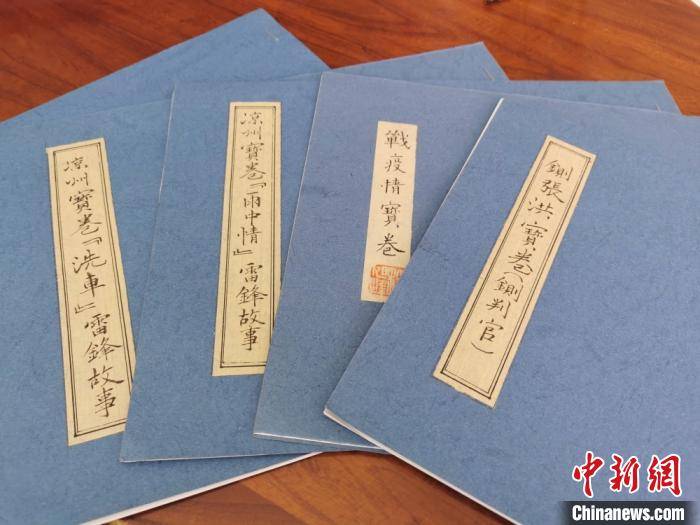 凉州寳卷『洗車』雷鋒故事
凉州寳卷『雨中情』雷鋒故事
戰疫情寳卷
鍘張洪寳卷(鍘判官)
中新网
Chinanews.com